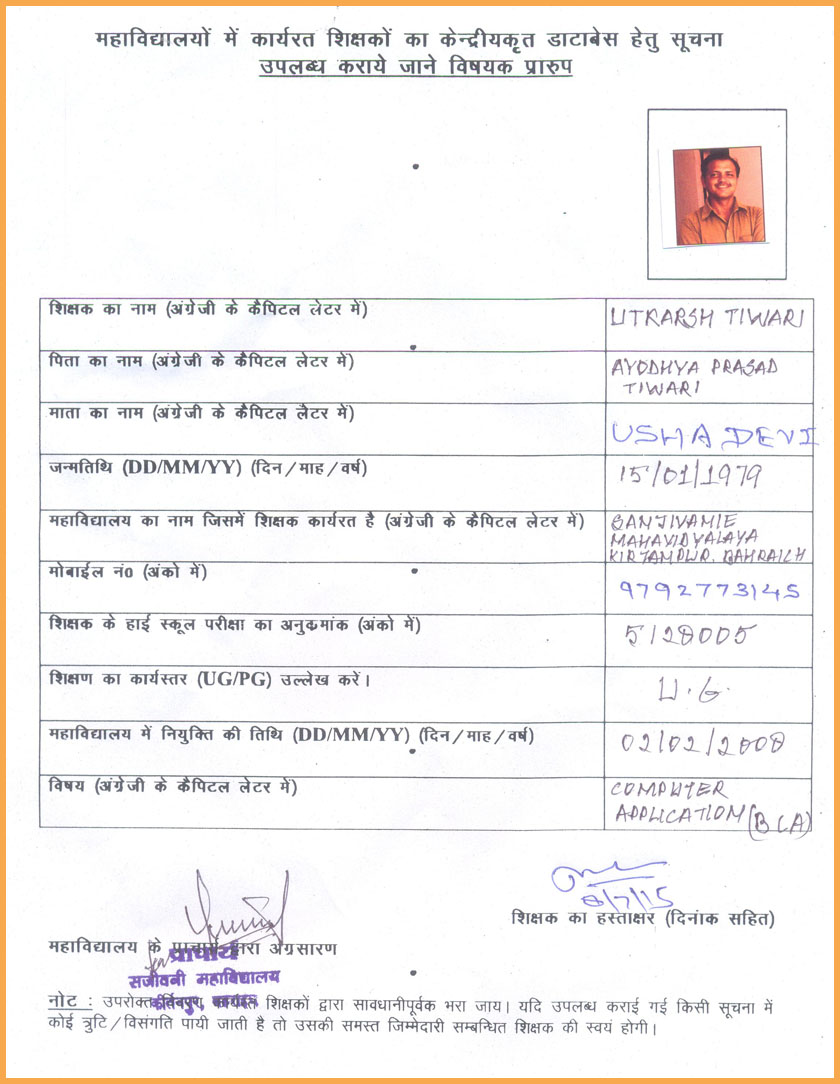 महाविद्यालयों में कार्यरत शिक्षकों का केन्द्रीयकृत डाटाबेस हेतु सूचना
उपलब्ध कराये जाने विषयक प्रारुप
शिक्षक का नाम (अंग्रेजी के कैपिटल लेटर में) UTKARSH TIWARI
पिता का नाम (अंग्रेजी के कैपिटल लेटर में) AYODHYA PRASAD
TIWARI
माता का नाम (अंग्रेजी के कैपिटल लैटर में) USHA DEVI
जन्मतिथि (DD/MM/YY) (दिन/माह/वर्ष) 15/01/1979
महाविद्यालय का नाम जिसमें शिक्षक कार्यरत है (अंग्रेजी के कैपिटल लेटर में)
MAHAVIDYALAYA
BAHRAICH
मोबाईल नं0 (अंको में) 9792773145
शिक्षक के हाई स्कूल परीक्षा का अनुक्रमांक (अंको में) 5128005
शिक्षण का कार्यस्तर (UG/PG) उल्लेख करें। U.G.
महाविद्यालय में नियुक्ति की तिथि (DD/MM/YY) (दिन/माह/वर्ष) 02/02/2008
विषय (अंग्रेजी के कैपिटल लेटर में) COMPUTER
APPLICATION (BCA)
8/7/15
शिक्षक का हस्ताक्षर (दिनांक सहित)
महाविद्यालय के प्राचार्य द्वारा अग्रसारण
प्राचार्य
सजीवनी महाविद्यालय
नोट : उपरोक्त शिक्षकों द्वारा सावधानीपूर्वक भरा जाय। यदि उपलब्ध कराई गई किसी सूचना में
कोई त्रुटि/विसंगति पायी जाती है तो उसकी समस्त जिम्मेदारी सम्बन्धित शिक्षक की स्वयं होगी।